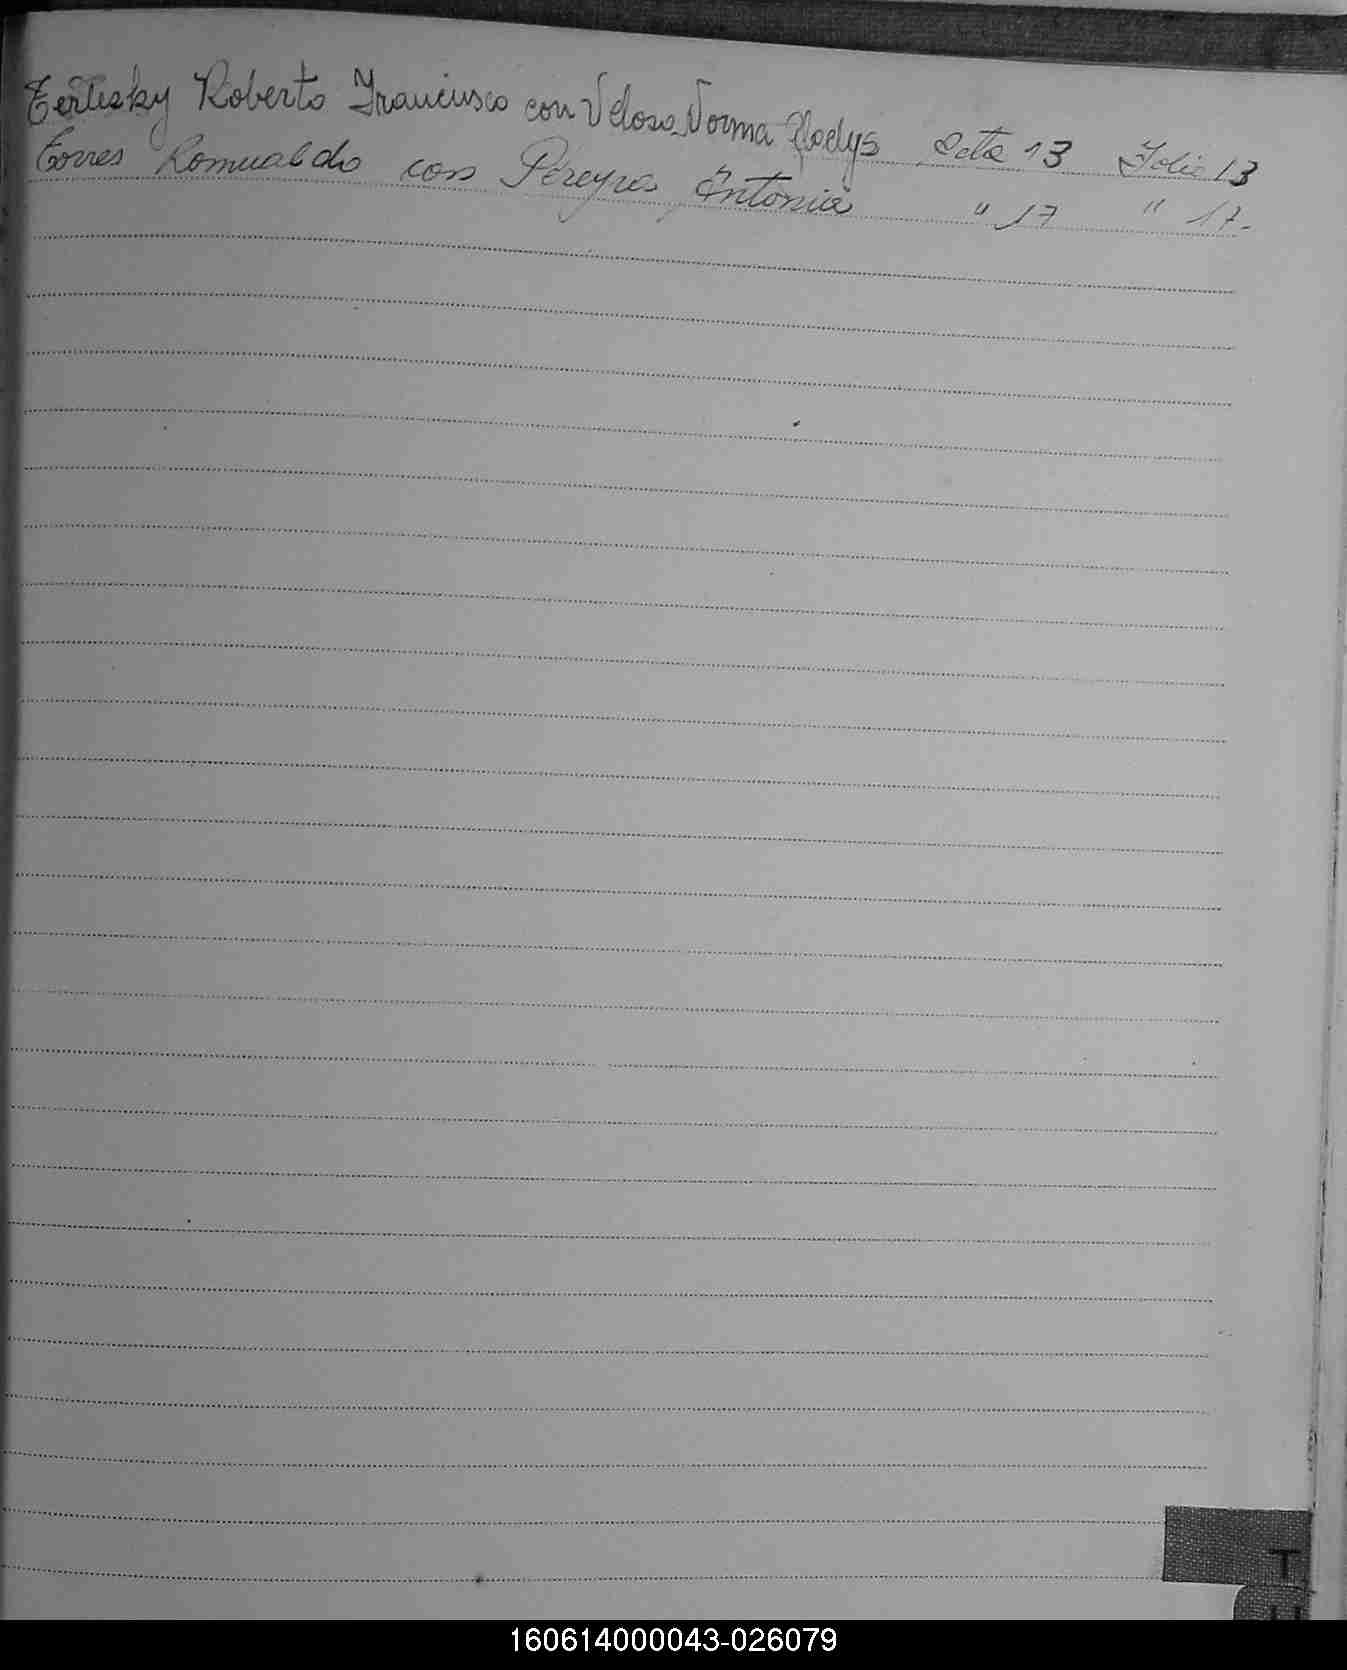 Terlisky Roberto Francisco con Veloso Norma Gladys Acta 13 Folio 13
Torres Romualdo con Pereyra Antonia " 17 " 17.
T
U
160614000043-026079